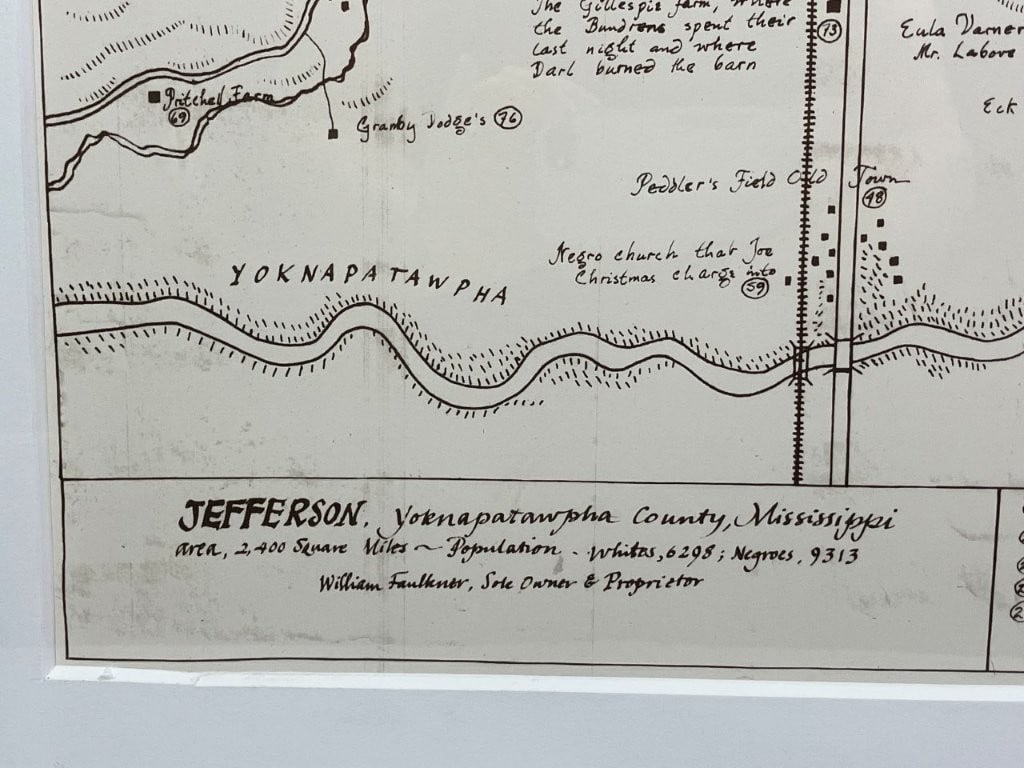 The Gillespie farm, where
the Bundrens spent their
last night and where
Darl burned the barn
73
Eula Varner
Mr. Labove
Eck
Pritchel Farm
69
Granby Dodge's 76
Peddler's Field Old Town
48
Negro church that Joe
Christmas charge into
59
YOKNAPATAWPHA
JEFFERSON, Yoknapatawpha County, Mississippi
area, 2,400 Square Miles ~ Population - Whites, 6298; Negroes, 9313
William Faulkner, Sole Owner & Proprietor